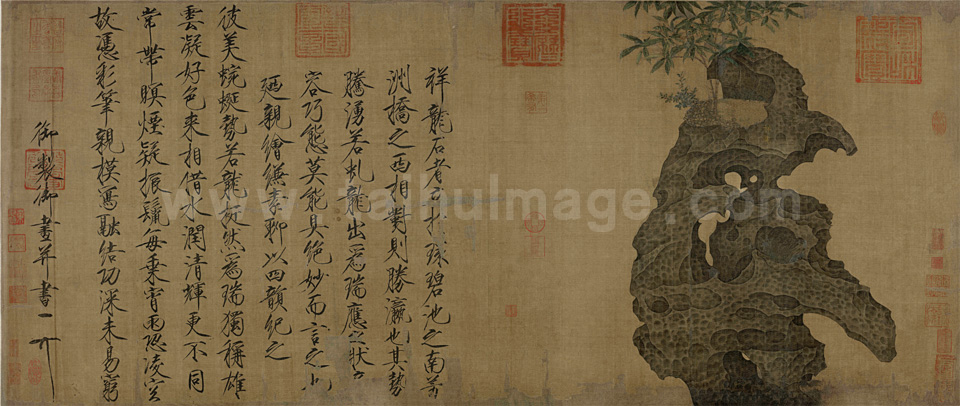 祥龍石者立於環碧池之南芳
洲橋之西相對則勝瀛也其勢
騰湧若虬龍出為瑞應之狀奇
容巧態莫能具絕妙而言之也
廼親繪縑素聊以四韻紀之
彼美蜿蜒勢若龍挺然為瑞獨稱雄
雲凝好色來相借水潤清輝更不同
常帶暝煙疑振鬣每乘宵雨恐凌空
故憑彩筆親模寫融結功深未易窮
御製御畫并書
www.taihuimage.com